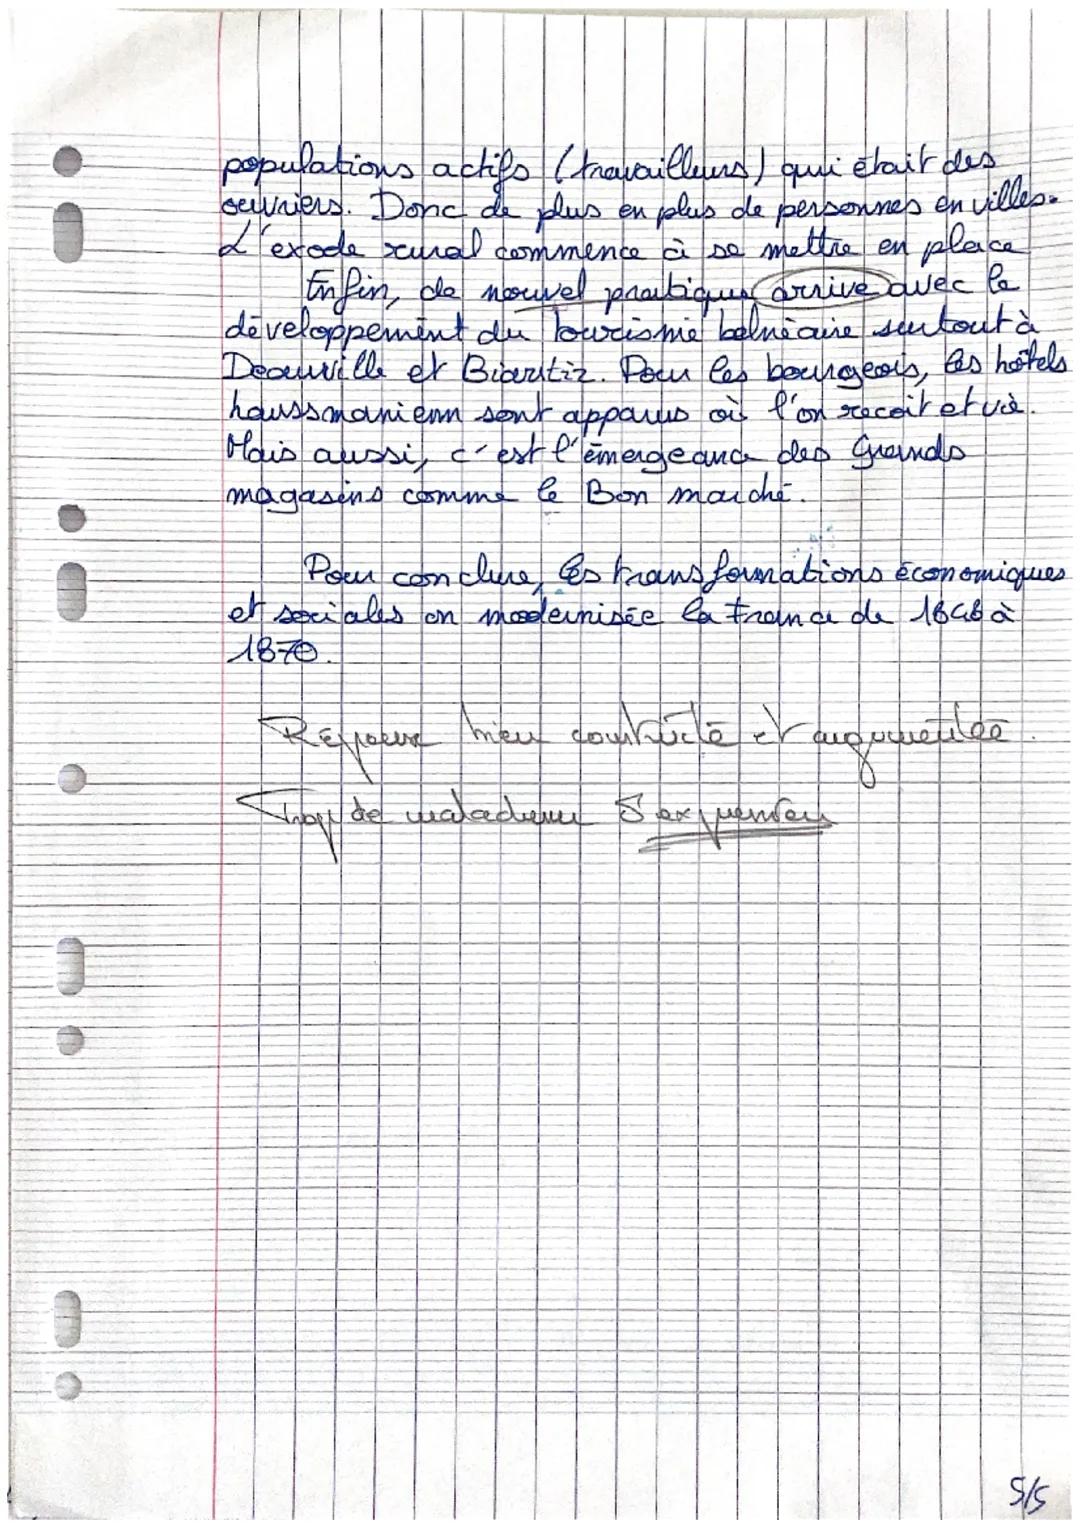 populations actifs (travailleurs) qui était des
ouvriers. Donc de plus en plus de personnes en villes.
L'exode rural commence à se mettre en place
Enfin, de nouvel pratiques arrive avec le
développement du tourisme balnéaire surtout à
Deauville et Biarritz. Pour les bourgeois, les hôtels
haussmanienn sont apparus où l'on recoit et vie.
Mais aussi, c'est l'émergeance des Grands
magasins comme le Bon marché.
Pour conclure, les transformations économiques
et sociales on modernisée la France de 1848 à
1870.
Réponse bien construite et argumentée.
Trop de maladresses d'expression
5/5